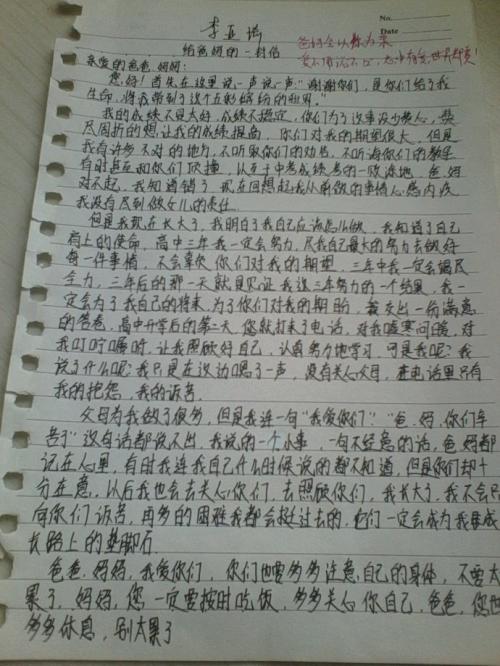 No.
Date
李亚
给爸妈的一封信
爸妈会以你为荣
亲爱的爸爸、妈妈:
您好!首先在这里说一声说一声:"谢谢你们,是你们给了我
生命,将我带到了这个五彩缤纷的世界。"
我的成绩不是太好,成绩不稳定,你们为了这事没少操心,想
尽周折的想让我的成绩提高,你们对我的期望很大,但是
我有许多不对的地方,不听取你们的劝告,不听海你们的教导
有时甚至和你们顶撞,以至于中考成绩考的一败涂地,爸妈
对不起,我知道错了,现在回想起我从前做的事情心感内疚
我没有尽到做女儿的责任。
但是我现在长大了,我明白了我自己应该怎么做,我知道了自己
肩上的使命,高中三年我一定会努力,尽我自己最大的努力去做好
每一件事情,不会辜负你们对我的期望,三年中我一定会竭尽
全力,三年后的那一天就是见证我这三年努力的一个结果,我一
定会为了我自己的将来,为了你们对我的期盼,我交出一份满意
的答卷,高中开学后的第二天,您就打来了电话,对我嘘寒问暖,对
我叮咛嘱咐,让我照顾好自己,认真努力地学习,可是我呢?我
说了什么呢?我只是在这边嗯了一声,没有关心父母,在电话里只有
我的抱怨,我的诉苦。
父母为我做了很多,但是我连一句"我爱你们""爸、妈、你们辛
苦了"这句话都说不出,我说的一个小事,一句不经意的话,爸妈都
记在心里,有时我连我自己什么时候说的都不知道,但是你们却十
分在意,以后我也会去关心你们,去照顾你们,我长大了,我不会只
向你们诉苦,再多的困难我都会挺过去的,它们一定会成为我要成
长路上的垫脚石。
爸爸、妈妈,我爱你们,你们也要多多注意自己的身体,不要太
累了,妈妈,您一定要按时吃饭,多多关心你自己,爸爸,您也
多多休息,别太累了